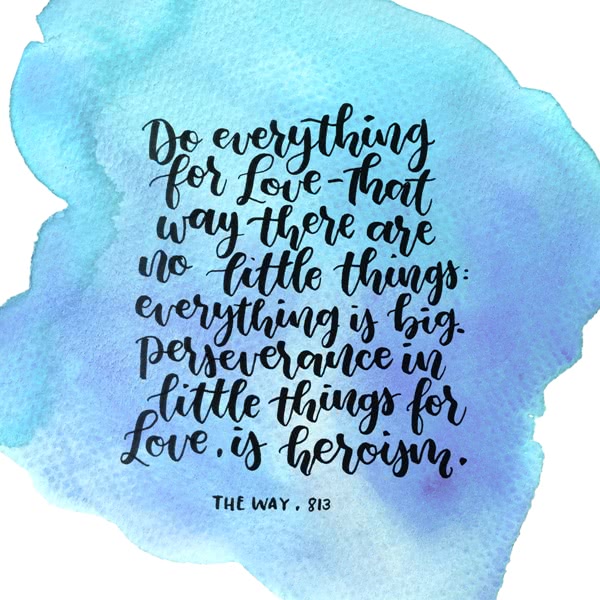 Do everything
for Love - That
way there are
no little things:
everything is big.
Perseverance in
little things for
Love, is heroism.
THE WAY, 813